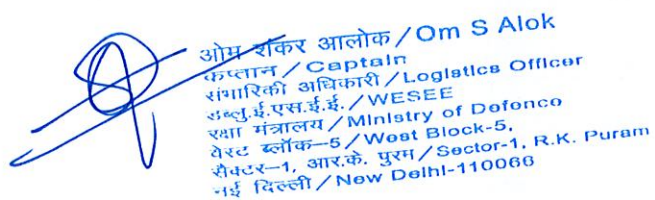 ओम शंकर आलोक/Om S Alok
कप्तान/Captain
संभारिकी अधिकारी/Logistics Officer
डब्लू.ई.एस.ई.ई./WESEE
रक्षा मंत्रालय/Ministry of Defence
वेस्ट ब्लॉक–5/West Block-5,
सैक्टर–1, आर.के. पुरम/Sector-1, R.K. Puram
नई दिल्ली/New Delhi-110066